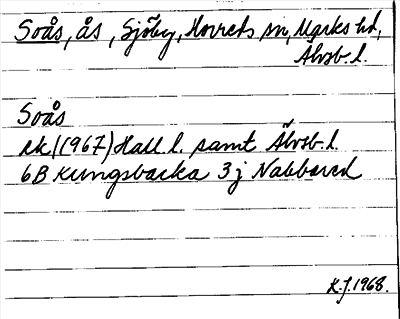 Soås, ås, Sjöby, Horreds sn, Marks hd,
Älvsb. l.
Soås
ek/(1967) Hall. l. samt Älvsb. l.
6B Kungsbacka 3j Nabbared
K.J. 1968.